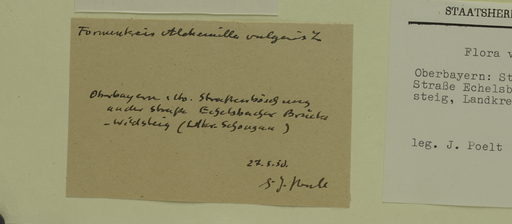 Formenkreis Alchemilla vulgaris L
Oberbayern: Straßenböschung
an der Straße Echelsbacher Brücke
- Wildsteig (Lkr. Schongau)
27.5.50.
J. Poelt
STAATSHER
Flora v
Oberbayern: St
Straße Echelsb
steig, Landkre
leg. J. Poelt